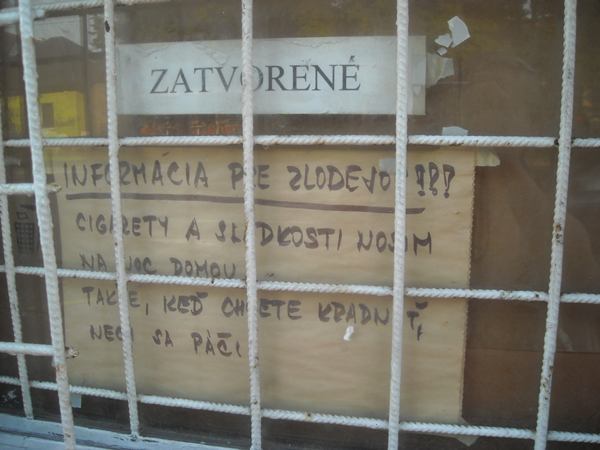 ZATVORENÉ
INFORMÁCIA PRE ZLODEJOV !!!
CIGARETY A SLADKOSTI NOSIM
NA NOC DOMOV.
TAKŽE, KEĎ CHCETE KRADNÚŤ,
NECH SA PÁČI